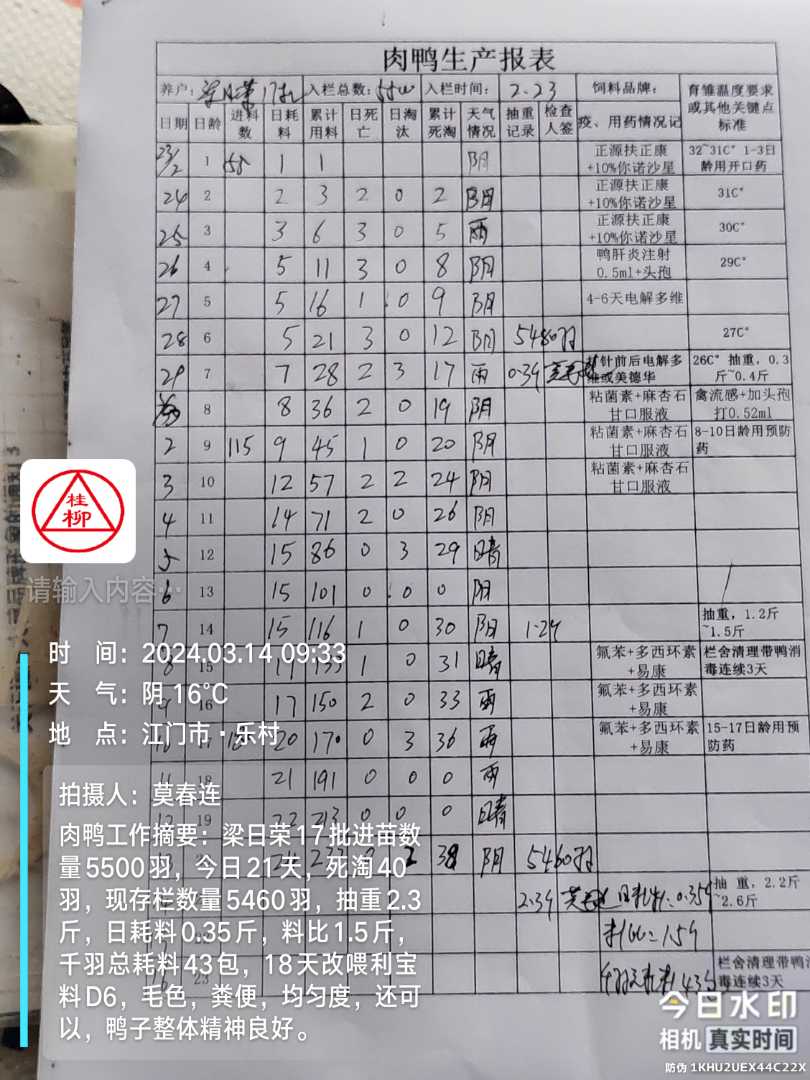 肉鸭生产报表
养户: 梁日荣17批 入栏总数: 5500 入栏时间: 2.23 饲料品牌: 育雏温度要求或其他关键点标准
日期 日龄 进料数 日耗料 累计用料 日死亡 日淘汰 累计死淘 天气情况 抽重记录 检查人签 疫、用药情况记
23/2 1 58 1 1 阴 正源扶正康+10%你诺沙星 32~31C° 1-3日龄用开口药
24 2 2 3 2 0 2 阴 正源扶正康+10%你诺沙星 31C°
25 3 3 6 3 0 5 雨 正源扶正康+10%你诺沙星 30C°
26 4 5 11 3 0 8 阴 鸭肝炎注射0.5ml+头孢 29C°
27 5 5 16 1 0 9 阴 4-6天电解多维
28 6 5 21 3 0 12 阴 5480羽 27C°
29 7 7 28 2 3 17 雨 0.39 针前后电解多维或美德华 26C° 抽重，0.3斤~0.4斤
8 8 36 2 0 19 阴 粘菌素+麻杏石甘口服液 禽流感+加头孢打0.52ml
2 9 115 9 45 1 0 20 阴 粘菌素+麻杏石甘口服液 8-10日龄用预防药
3 10 12 57 2 2 24 阴 粘菌素+麻杏石甘口服液
4 11 14 71 2 0 26 阴
5 12 15 86 0 3 29 晴
6 13 15 101 0 0 0 阴
7 14 15 116 1 0 30 阴 1.29 抽重，1.2斤~1.5斤
8 15 17 133 1 0 31 晴 氟苯+多西环素+易康 栏舍清理带鸭消毒连续3天
9 16 17 150 2 0 33 雨 氟苯+多西环素+易康
17 20 170 0 3 36 雨 氟苯+多西环素+易康 15-17日龄用预防药
11 18 21 191 0 0 0 雨
12 19 22 213 0 0 0 晴
2 38 阴 5460羽
2.39 日耗料=0.359 抽重，2.2斤~2.6斤
料比=1.59
23 千羽总耗料43包 栏舍清理带鸭消毒连续3天
桂柳
请输入内容…
时 间: 2024.03.14 09:33
天 气: 阴 16℃
地 点: 江门市·乐村
拍摄人: 莫春连
肉鸭工作摘要: 梁日荣17批进苗数
量5500羽，今日21天，死淘40
羽，现存栏数量5460羽，抽重2.3
斤，日耗料0.35斤，料比1.5斤，
千羽总耗料43包，18天改喂利宝
料D6，毛色，粪便，均匀度，还可
以，鸭子整体精神良好。
今日水印
相机 真实时间
防伪 1KHU2UEX44C22X